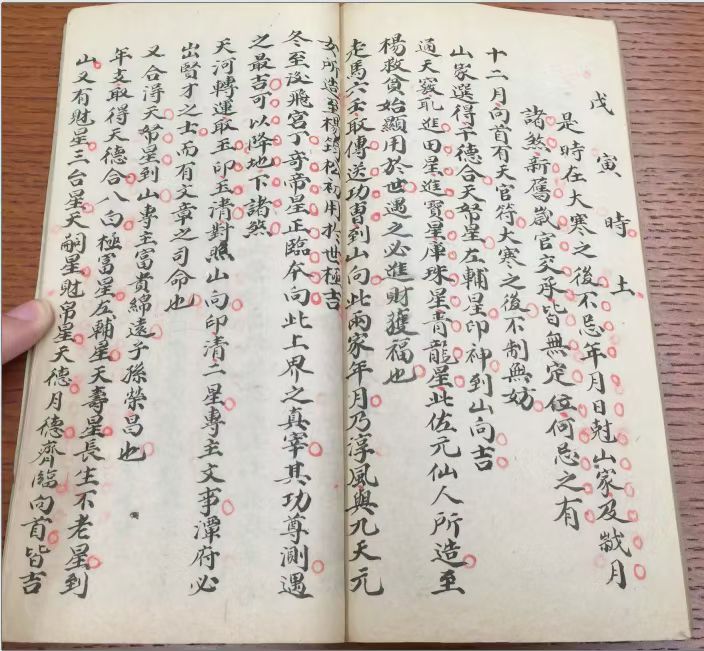 戊寅時土
是時在大寒之後不忌年月日尅山家及戥月
諸煞新舊歲官交承皆無定位何忌之有
十二月向首有天官符大寒之後不制無妨
山家選得干德合天帑星左輔星印神到山向吉
通天竅馭進田星進寶星庫珠星青龍星此佐元仙人所造至
楊救貧始顯用於世遇之必進財獲福也
走馬六壬取傳送功曹到山向此兩家年月乃淳風與九天元
女所造至楊筠松初用於世極吉
冬至後飛宮丁奇帝星正臨夲向此上界之真宰其功尊測遇
之最吉可以降地下諸煞
天河轉運取玉印玉清對照山向印清二星專主文事潭府必
出賢才之士而有文章之司命也
又合得天帑星到山專主富貴綿遠子孫榮昌也
年支取得天德合八白極富星左輔星天壽星長生不老星到
山又有財星三台星天嗣星財帛星天德月德齊臨向首皆吉